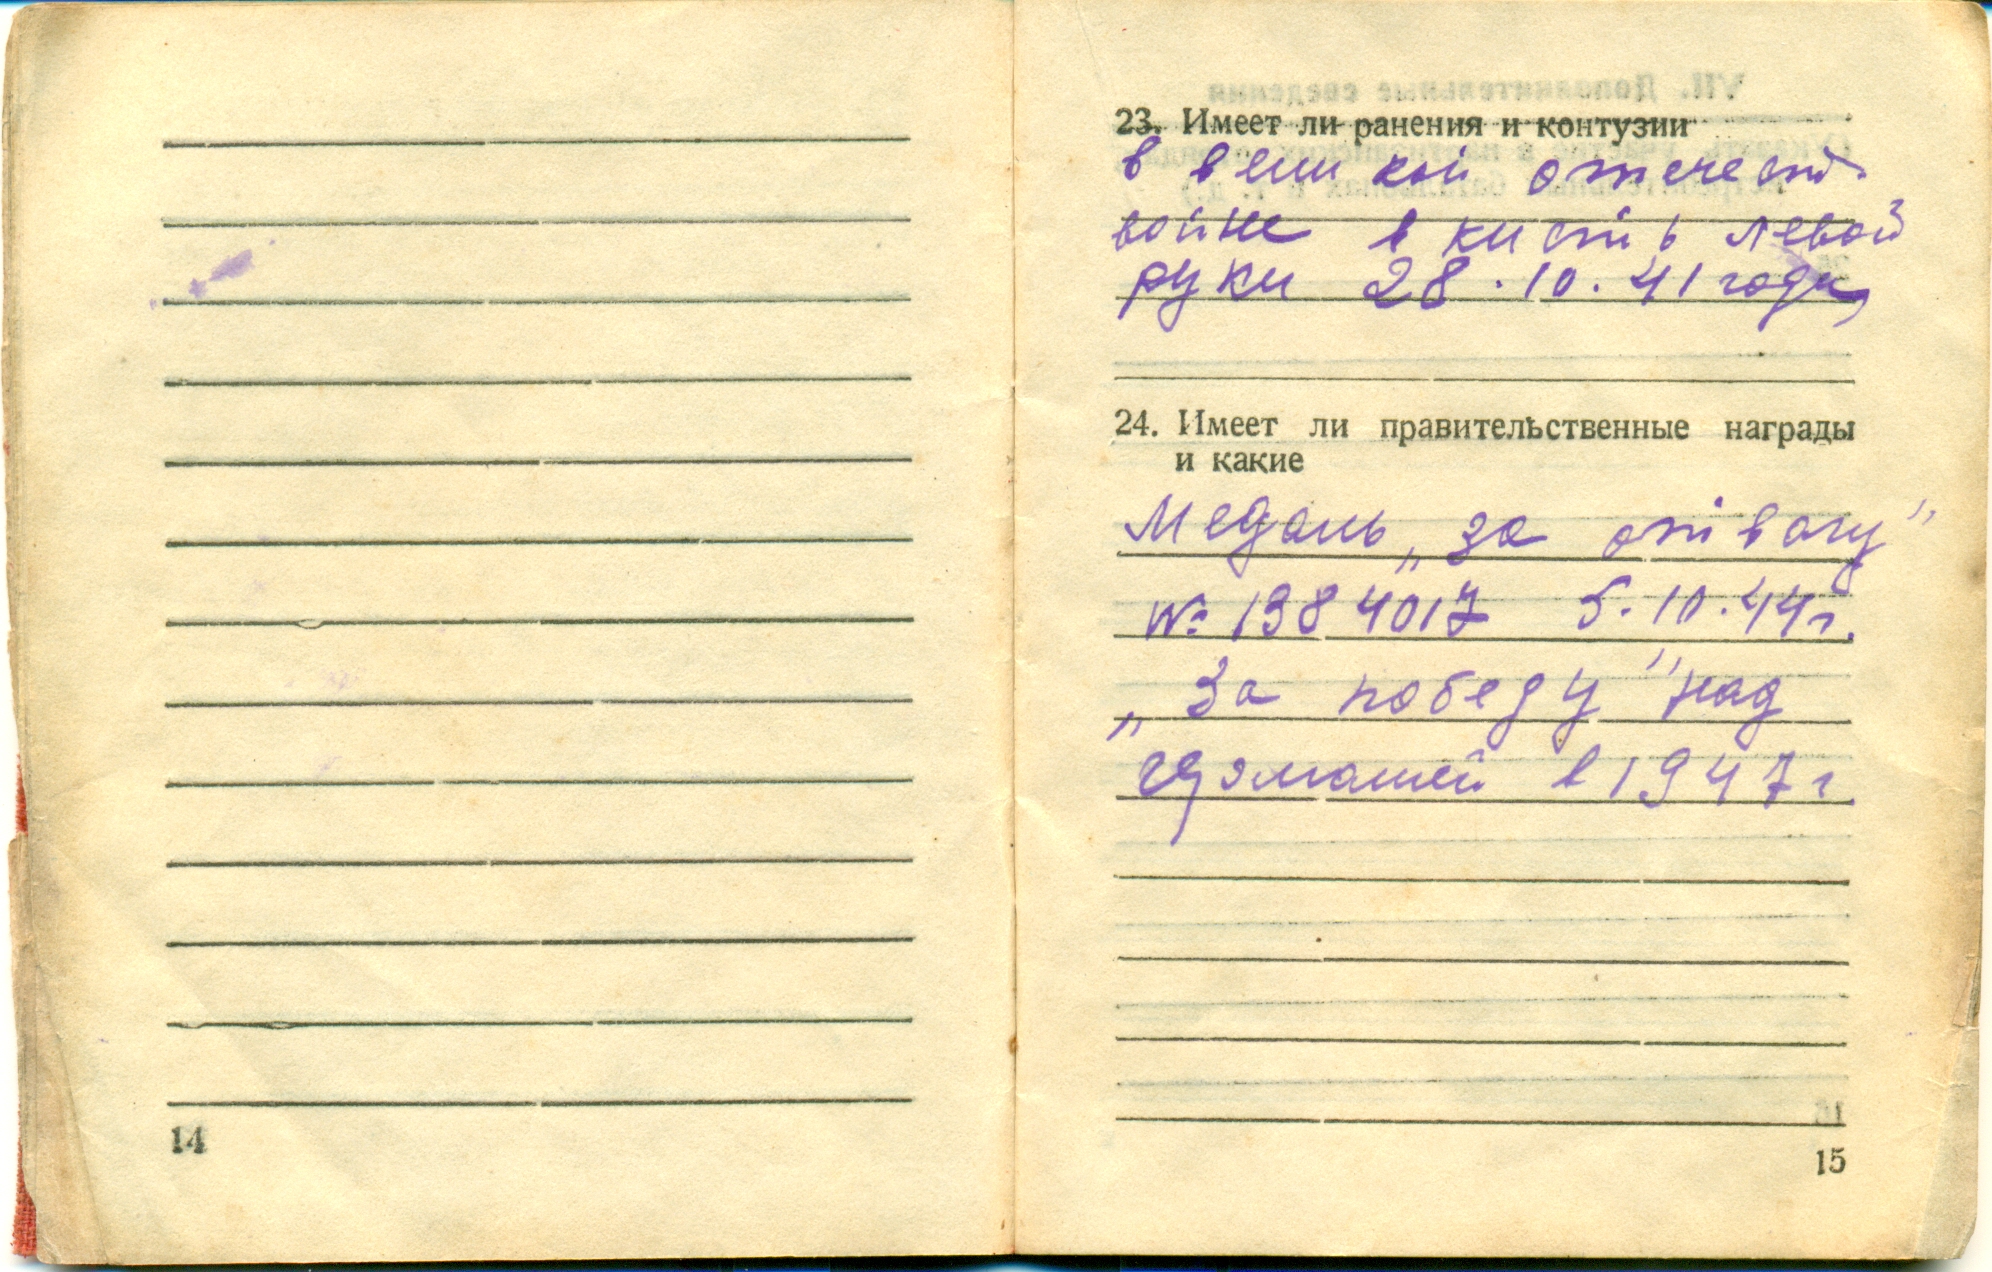 14
23. Имеет ли ранения и контузии
в великой отечеств.
войне в кисть левой
руки 28.10.41 года,
24. Имеет ли правительственные награды
и какие
Медаль „за отвагу"
№ 1384017 5.10.44г.
„За победу" над
в 1947г.
15